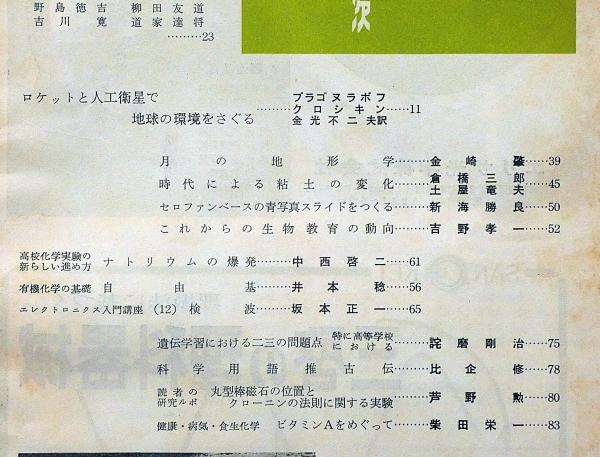 次
野島徳吉 柳田友道
吉川寛 道家達将
………23
ロケットと人工衛星で
地球の環境をさぐる………ブラゴヌラボフ クロシキン 金光不二夫訳……11
月の地形学………金崎肇……39
時代による粘土の変化………倉橋三郎 土屋竜夫……45
セロファンベースの青写真スライドをつくる………新海勝良……50
これからの生物教育の動向………吉野孝一……52
高校化学実験の新らしい進め方 ナトリウムの爆発………中西啓二……61
有機化学の基礎 自由基………井本稔……56
エレクトロニクス入門講座(12)検波………坂本正一……65
遺伝学習における二三の問題点 特に高等学校における………詫磨剛治……75
科学用語推古伝………比企修……78
読者の研究ルポ 丸型棒磁石の位置と
クローニンの法則に関する実験………芦野勲……80
健康・病気・食生化学 ビタミンAをめぐって………柴田栄一……83